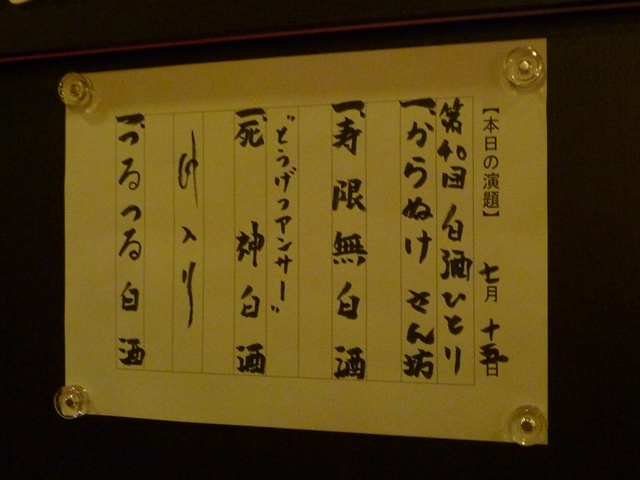 【本日の演題】 七月十五日
第40回 白酒ひとり
一、からぬけ さん坊
一、寿限無 白酒
"どうげつアンサー"
一、死神 白酒
仲入り
一、つるつる 白酒